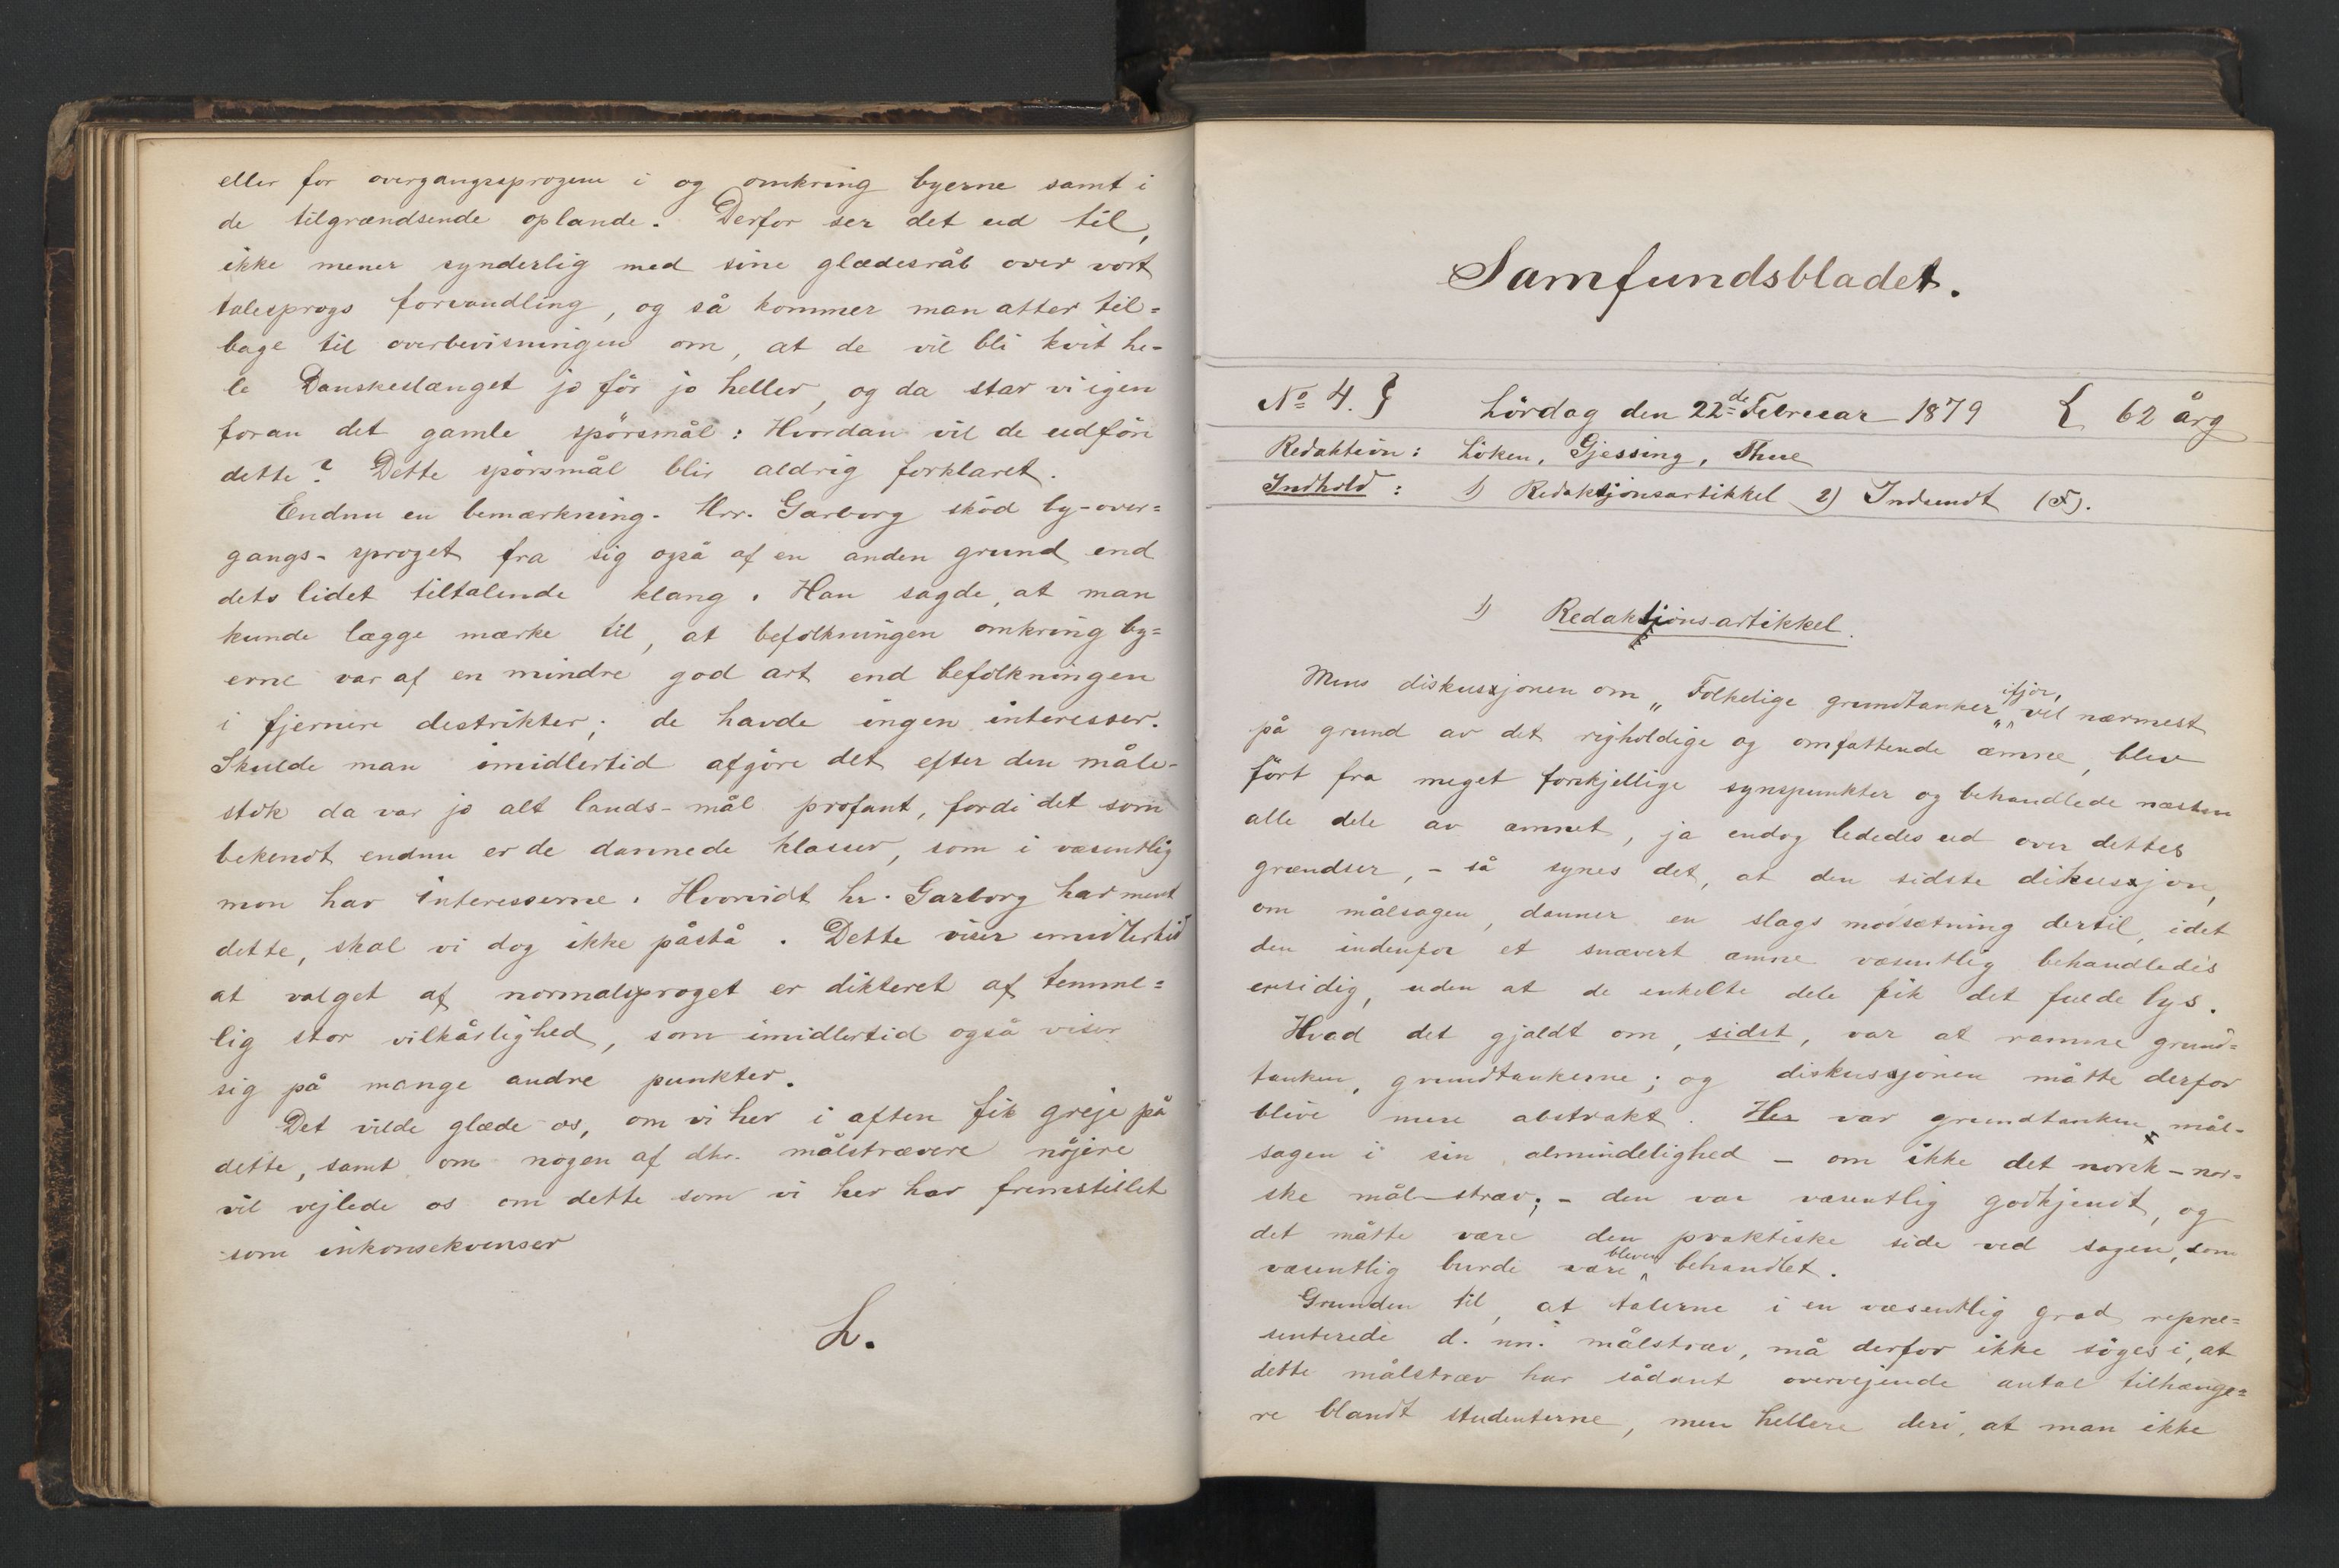 eller for overgangssprogene i og omkring byerne samt i
de tilgrændsende oplande. Derfor ser det ud til,
ikke mener synderlig med sine glædesråb over vort
talesprogs forvandling, og så kommer man atter til=
bage til overbevisningen om, at de vil bli kvit he-
le Danskeslænget jo för jo heller, og da står vi igen
foran det gamle spörsmål: Hvordan vil de udföre
dette? Dette spörsmål blir aldrig forklaret.
Endnu en bemærkning. Hrr. Garborg sköd by-over=
gangs-sproget fra sig også af en anden grund end
dets lidet tiltalende klang. Han sagde, at man
kunde lægge mærke til, at befolkningen omkring by=
erne var af en mindre god art end befolkningen
i fjernere destrikter; de havde ingen interesser.
Skulde man imidlertid afgöre det efter den måle-
stok da var jo alt lands-mål profant, fordi det som
bekendt endnu er de dannede klasser, som i væsentlig
mon har interesserne. Hvorvidt hr. Garborg har ment
dette, skal vi dog ikke påstå. Dette viser imidlertid
at valget af normalsproget er dikteret af temme=
lig stor vilkårlighed, som imidlertid også viser
sig på mange andre punkter.
Det vilde glæde os, om vi her i aften fik greje på
dette, samt om nogen af dhr. målstrævere nöjere
vil vejlede os om dette som vi her har fremstillet
som inkonsekvenser
L.
Samfundsbladet.
No 4. } Lördag den 22de Februar 1879 { 62 årg
Redaktion: Löken, Gjessing, Thue
Indhold: 1) Redaktjonsartikkel 2) Indsendt (F).
1) Redaktionsartikkel.
Mens diskussjonen om „Folkelige grundtanker" ifjor, vel nærmest
på grund av det righoldige og omfattende æmne, blev
fört fra meget forskjellige synspunkter og behandlede næsten
alle dele av æmnet, ja endog lededes ud over dettes
grændser, – så synes det, at den sidste diskussjon,
om målsagen, danner en slags modsætning dertil, idet
den indenfor et snævert æmne væsentlig behandledes
ensidig, uden at de enkelte dele fik det fulde lys.
Hvad det gjaldt om, sidst, var at ramme grund=
tanken, grundtankerne; og diskussjonen måtte derfor
blive mere abstrakt. Her var grundtanken, mål-
sagen i sin almindelighed – om ikke det norsk-nor-
ske mål-stræv; – den var væsentlig godkjendt, og
det måtte være den praktiske side ved sagen, som
væsentlig burde være bleven behandlet.
Grunden til, at talerne i en væsentlig grad repræ=
senterede d. nn. målstræv, må derfor ikke söges i, at
dette målstræv har sådant overvejende antal tilhænge=
re blandt studenterne, men hellere deri, at man ikke